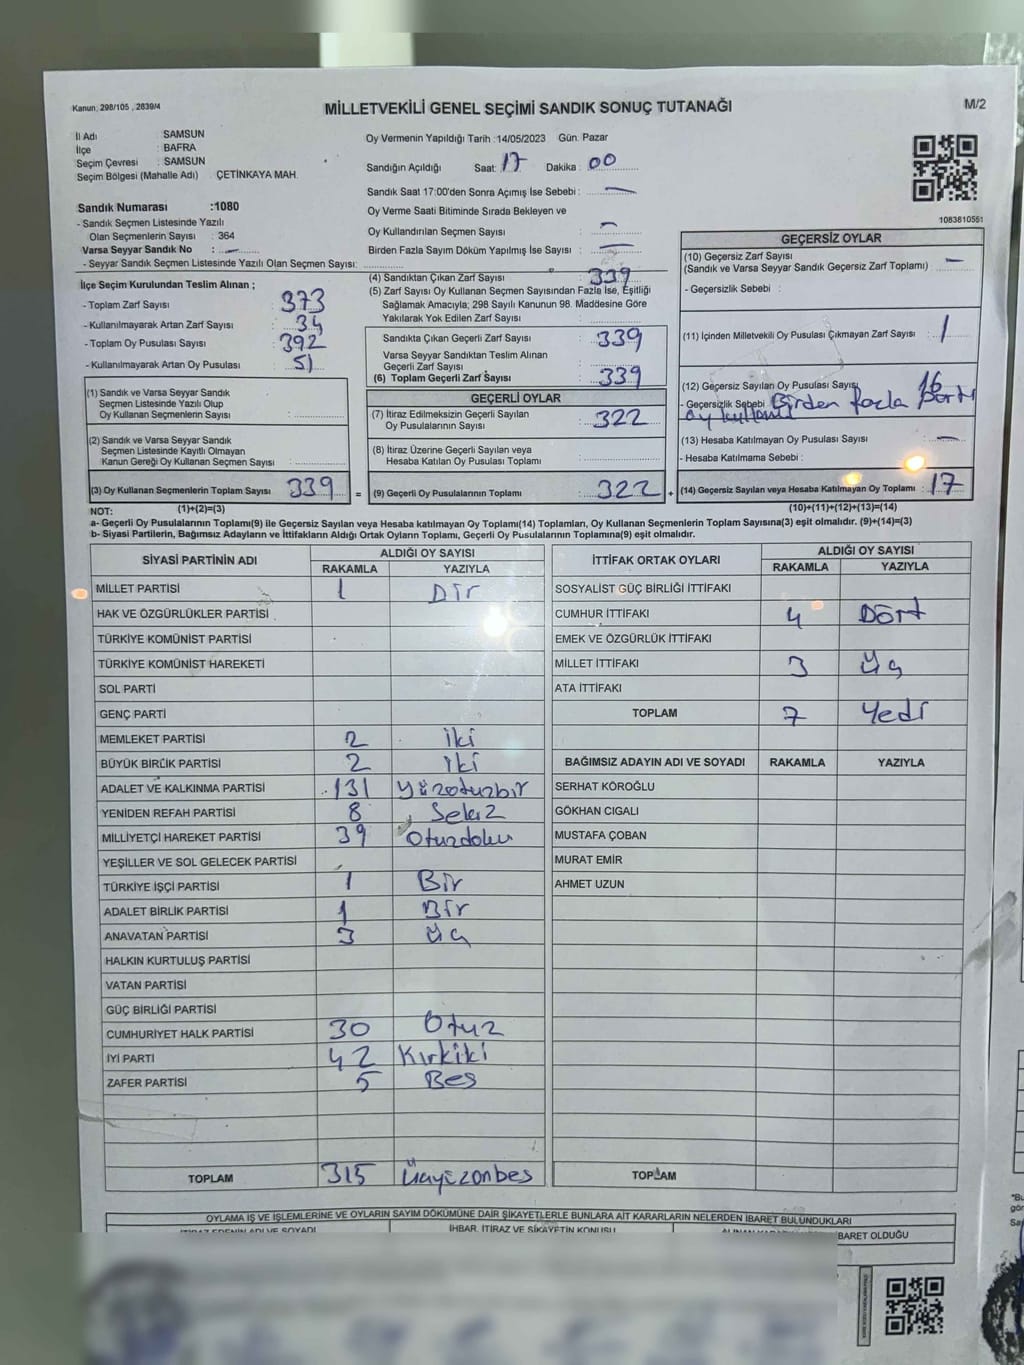 Kanun: 298/105 , 2839/4
MİLLETVEKİLİ GENEL SEÇİMİ SANDIK SONUÇ TUTANAĞI
M/2
İl Adı : SAMSUN
İlçe : BAFRA
Seçim Çevresi : SAMSUN
Seçim Bölgesi (Mahalle Adı) : ÇETİNKAYA MAH.
Oy Vermenin Yapıldığı Tarih :14/05/2023 Gün: Pazar
Sandığın Açıldığı Saat: 17 Dakika : 00
Sandık Saat 17:00'den Sonra Açımış İse Sebebi : —
Oy Verme Saati Bitiminde Sırada Bekleyen ve
Oy Kullandırılan Seçmen Sayısı : —
Birden Fazla Sayım Döküm Yapılmış İse Sayısı : —
1083810551
Sandık Numarası :1080
- Sandık Seçmen Listesinde Yazılı
Olan Seçmenlerin Sayısı : 364
Varsa Seyyar Sandık No : —
- Seyyar Sandık Seçmen Listesinde Yazılı Olan Seçmen Sayısı:
İlçe Seçim Kurulundan Teslim Alınan ;
- Toplam Zarf Sayısı : 373
- Kullanılmayarak Artan Zarf Sayısı : 34
- Toplam Oy Pusulası Sayısı : 392
- Kullanılmayarak Artan Oy Pusulası : 51
(1) Sandık ve Varsa Seyyar Sandık
Seçmen Listesinde Yazılı Olup
Oy Kullanan Seçmenlerin Sayısı :
(2) Sandık ve Varsa Seyyar Sandık
Seçmen Listesinde Kayıtlı Olmayan
Kanun Gereği Oy Kullanan Seçmen Sayısı :
(3) Oy Kullanan Seçmenlerin Toplam Sayısı : 339
(1)+(2)=(3)
(4) Sandıktan Çıkan Zarf Sayısı : 339
(5) Zarf Sayısı Oy Kullanan Seçmen Sayısından Fazla İse, Eşitliği
Sağlamak Amacıyla; 298 Sayılı Kanunun 98. Maddesine Göre
Yakılarak Yok Edilen Zarf Sayısı :
Sandıkta Çıkan Geçerli Zarf Sayısı : 339
Varsa Seyyar Sandıktan Teslim Alınan
Geçerli Zarf Sayısı :
(6) Toplam Geçerli Zarf Sayısı : 339
GEÇERLİ OYLAR
(7) İtiraz Edilmeksizin Geçerli Sayılan
Oy Pusulalarının Sayısı : 322
(8) İtiraz Üzerine Geçerli Sayılan veya
Hesaba Katılan Oy Pusulası Toplamı :
= (9) Geçerli Oy Pusulalarının Toplamı : 322 +
GEÇERSİZ OYLAR
(10) Geçersiz Zarf Sayısı
(Sandık ve Varsa Seyyar Sandık Geçersiz Zarf Toplamı) : —
- Geçersizlik Sebebi :
(11) İçinden Milletvekili Oy Pusulası Çıkmayan Zarf Sayısı : 1
(12) Geçersiz Sayılan Oy Pusulası Sayısı : 16
- Geçersizlik Sebebi : Birden fazla parti
oy kullanıl
(13) Hesaba Katılmayan Oy Pusulası Sayısı : —
- Hesaba Katılmama Sebebi :
(14) Geçersiz Sayılan veya Hesaba Katılmayan Oy Toplamı : 17
(10)+(11)+(12)+(13)=(14)
NOT:
a- Geçerli Oy Pusulalarının Toplamı(9) ile Geçersiz Sayılan veya Hesaba katılmayan Oy Toplamı(14) Toplamları, Oy Kullanan Seçmenlerin Toplam Sayısına(3) eşit olmalıdır. (9)+(14)=(3)
b- Siyasi Partilerin, Bağımsız Adayların ve İttifakların Aldığı Ortak Oyların Toplamı, Geçerli Oy Pusulalarının Toplamına(9) eşit olmalıdır.
SİYASİ PARTİNİN ADI ALDIĞI OY SAYISI
RAKAMLA YAZIYLA
MİLLET PARTİSİ 1 Bir
HAK VE ÖZGÜRLÜKLER PARTİSİ
TÜRKİYE KOMÜNİST PARTİSİ
TÜRKİYE KOMÜNİST HAREKETİ
SOL PARTİ
GENÇ PARTİ
MEMLEKET PARTİSİ 2 iki
BÜYÜK BİRLİK PARTİSİ 2 iki
ADALET VE KALKINMA PARTİSİ 131 Yüzotuzbir
YENİDEN REFAH PARTİSİ 8 Sekiz
MİLLİYETÇİ HAREKET PARTİSİ 39 Otuzdokuz
YEŞİLLER VE SOL GELECEK PARTİSİ
TÜRKİYE İŞÇİ PARTİSİ 1 Bir
ADALET BİRLİK PARTİSİ 1 Bir
ANAVATAN PARTİSİ 3 üç
HALKIN KURTULUŞ PARTİSİ
VATAN PARTİSİ
GÜÇ BİRLİĞİ PARTİSİ
CUMHURİYET HALK PARTİSİ 30 Otuz
İYİ PARTİ 42 Kırkiki
ZAFER PARTİSİ 5 Beş
TOPLAM 315 Üçyüzonbeş
İTTİFAK ORTAK OYLARI ALDIĞI OY SAYISI
RAKAMLA YAZIYLA
SOSYALİST GÜÇ BİRLİĞİ İTTİFAKI
CUMHUR İTTİFAKI 4 Dört
EMEK VE ÖZGÜRLÜK İTTİFAKI
MİLLET İTTİFAKI 3 Üç
ATA İTTİFAKI
TOPLAM 7 Yedi
BAĞIMSIZ ADAYIN ADI VE SOYADI RAKAMLA YAZIYLA
SERHAT KÖROĞLU
GÖKHAN CIGALI
MUSTAFA ÇOBAN
MURAT EMİR
AHMET UZUN
TOPLAM
OYLAMA İŞ VE İŞLEMLERİNE VE OYLARIN SAYIM DÖKÜMÜNE DAİR ŞİKAYETLERLE BUNLARA AİT KARARLARIN NELERDEN İBARET BULUNDUKLARI
İHBAR, İTİRAZ VE ŞİKAYETİN KONUSU
BARET OLDUĞU